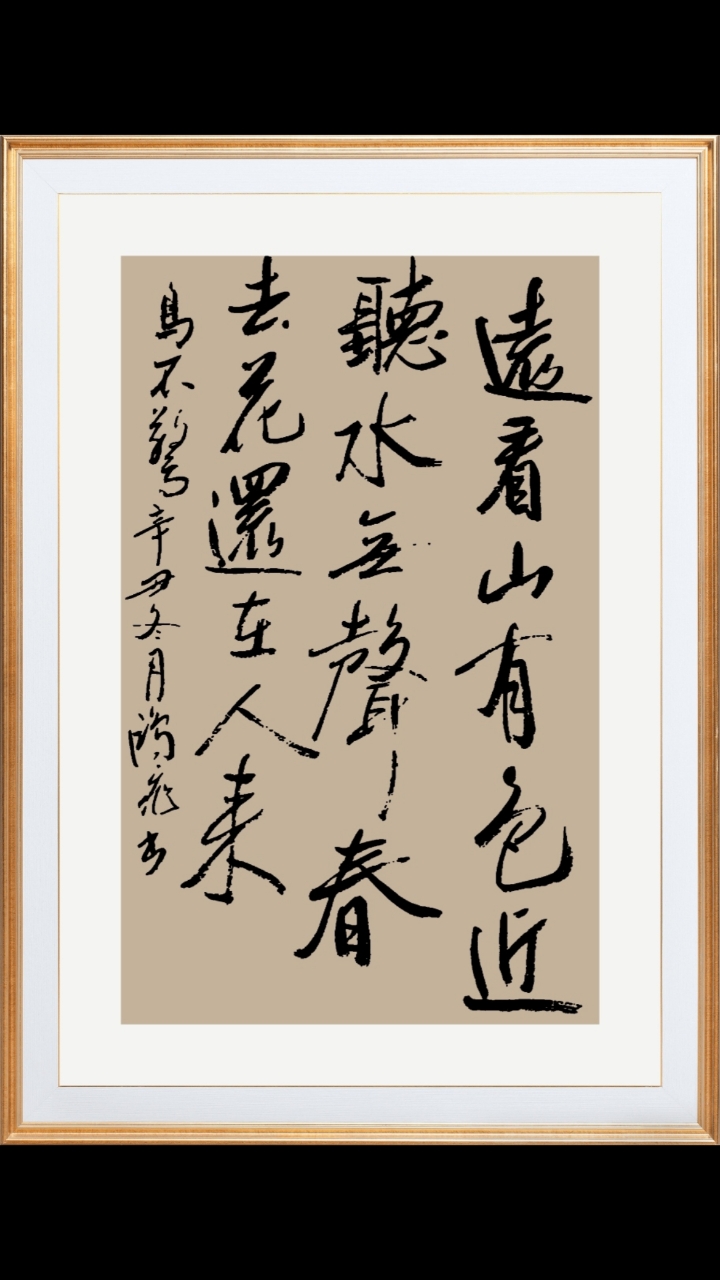 遠看山有色近
聽水無聲春
去花還在人來
鳥不驚辛丑冬月 書